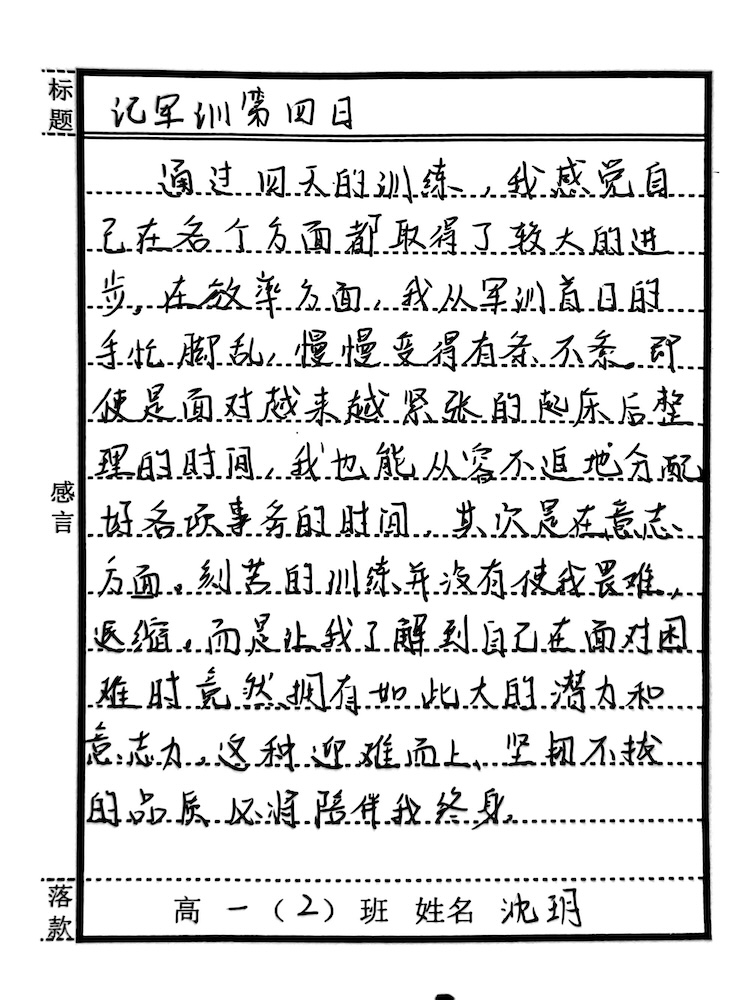 标题
记军训第四日
通过四天的训练，我感觉自
己在各个方面都取得了较大的进
步。在效率方面，我从军训首日的
手忙脚乱，慢慢变得有条不紊。即
使是面对越来越紧张的起床后整
理的时间，我也能从容不迫地分配
好各项事务的时间，其次是在意志
方面。刻苦的训练并没有使我畏难，
退缩，而是让我了解到自己在面对困
难时竟然拥有如此大的潜力和
意志力。这种迎难而上、坚韧不拔
的品质必将陪伴我终身。
感言
落款
高一（2）班 姓名 沈玥